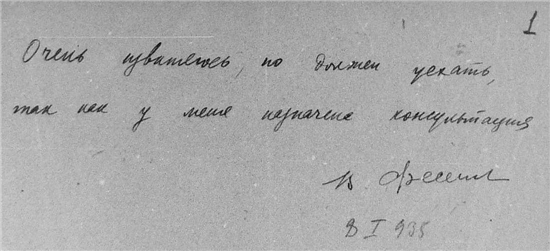 1
Очень извиняюсь, но должен уехать,
так как у меня назначена консультация
8 I 935